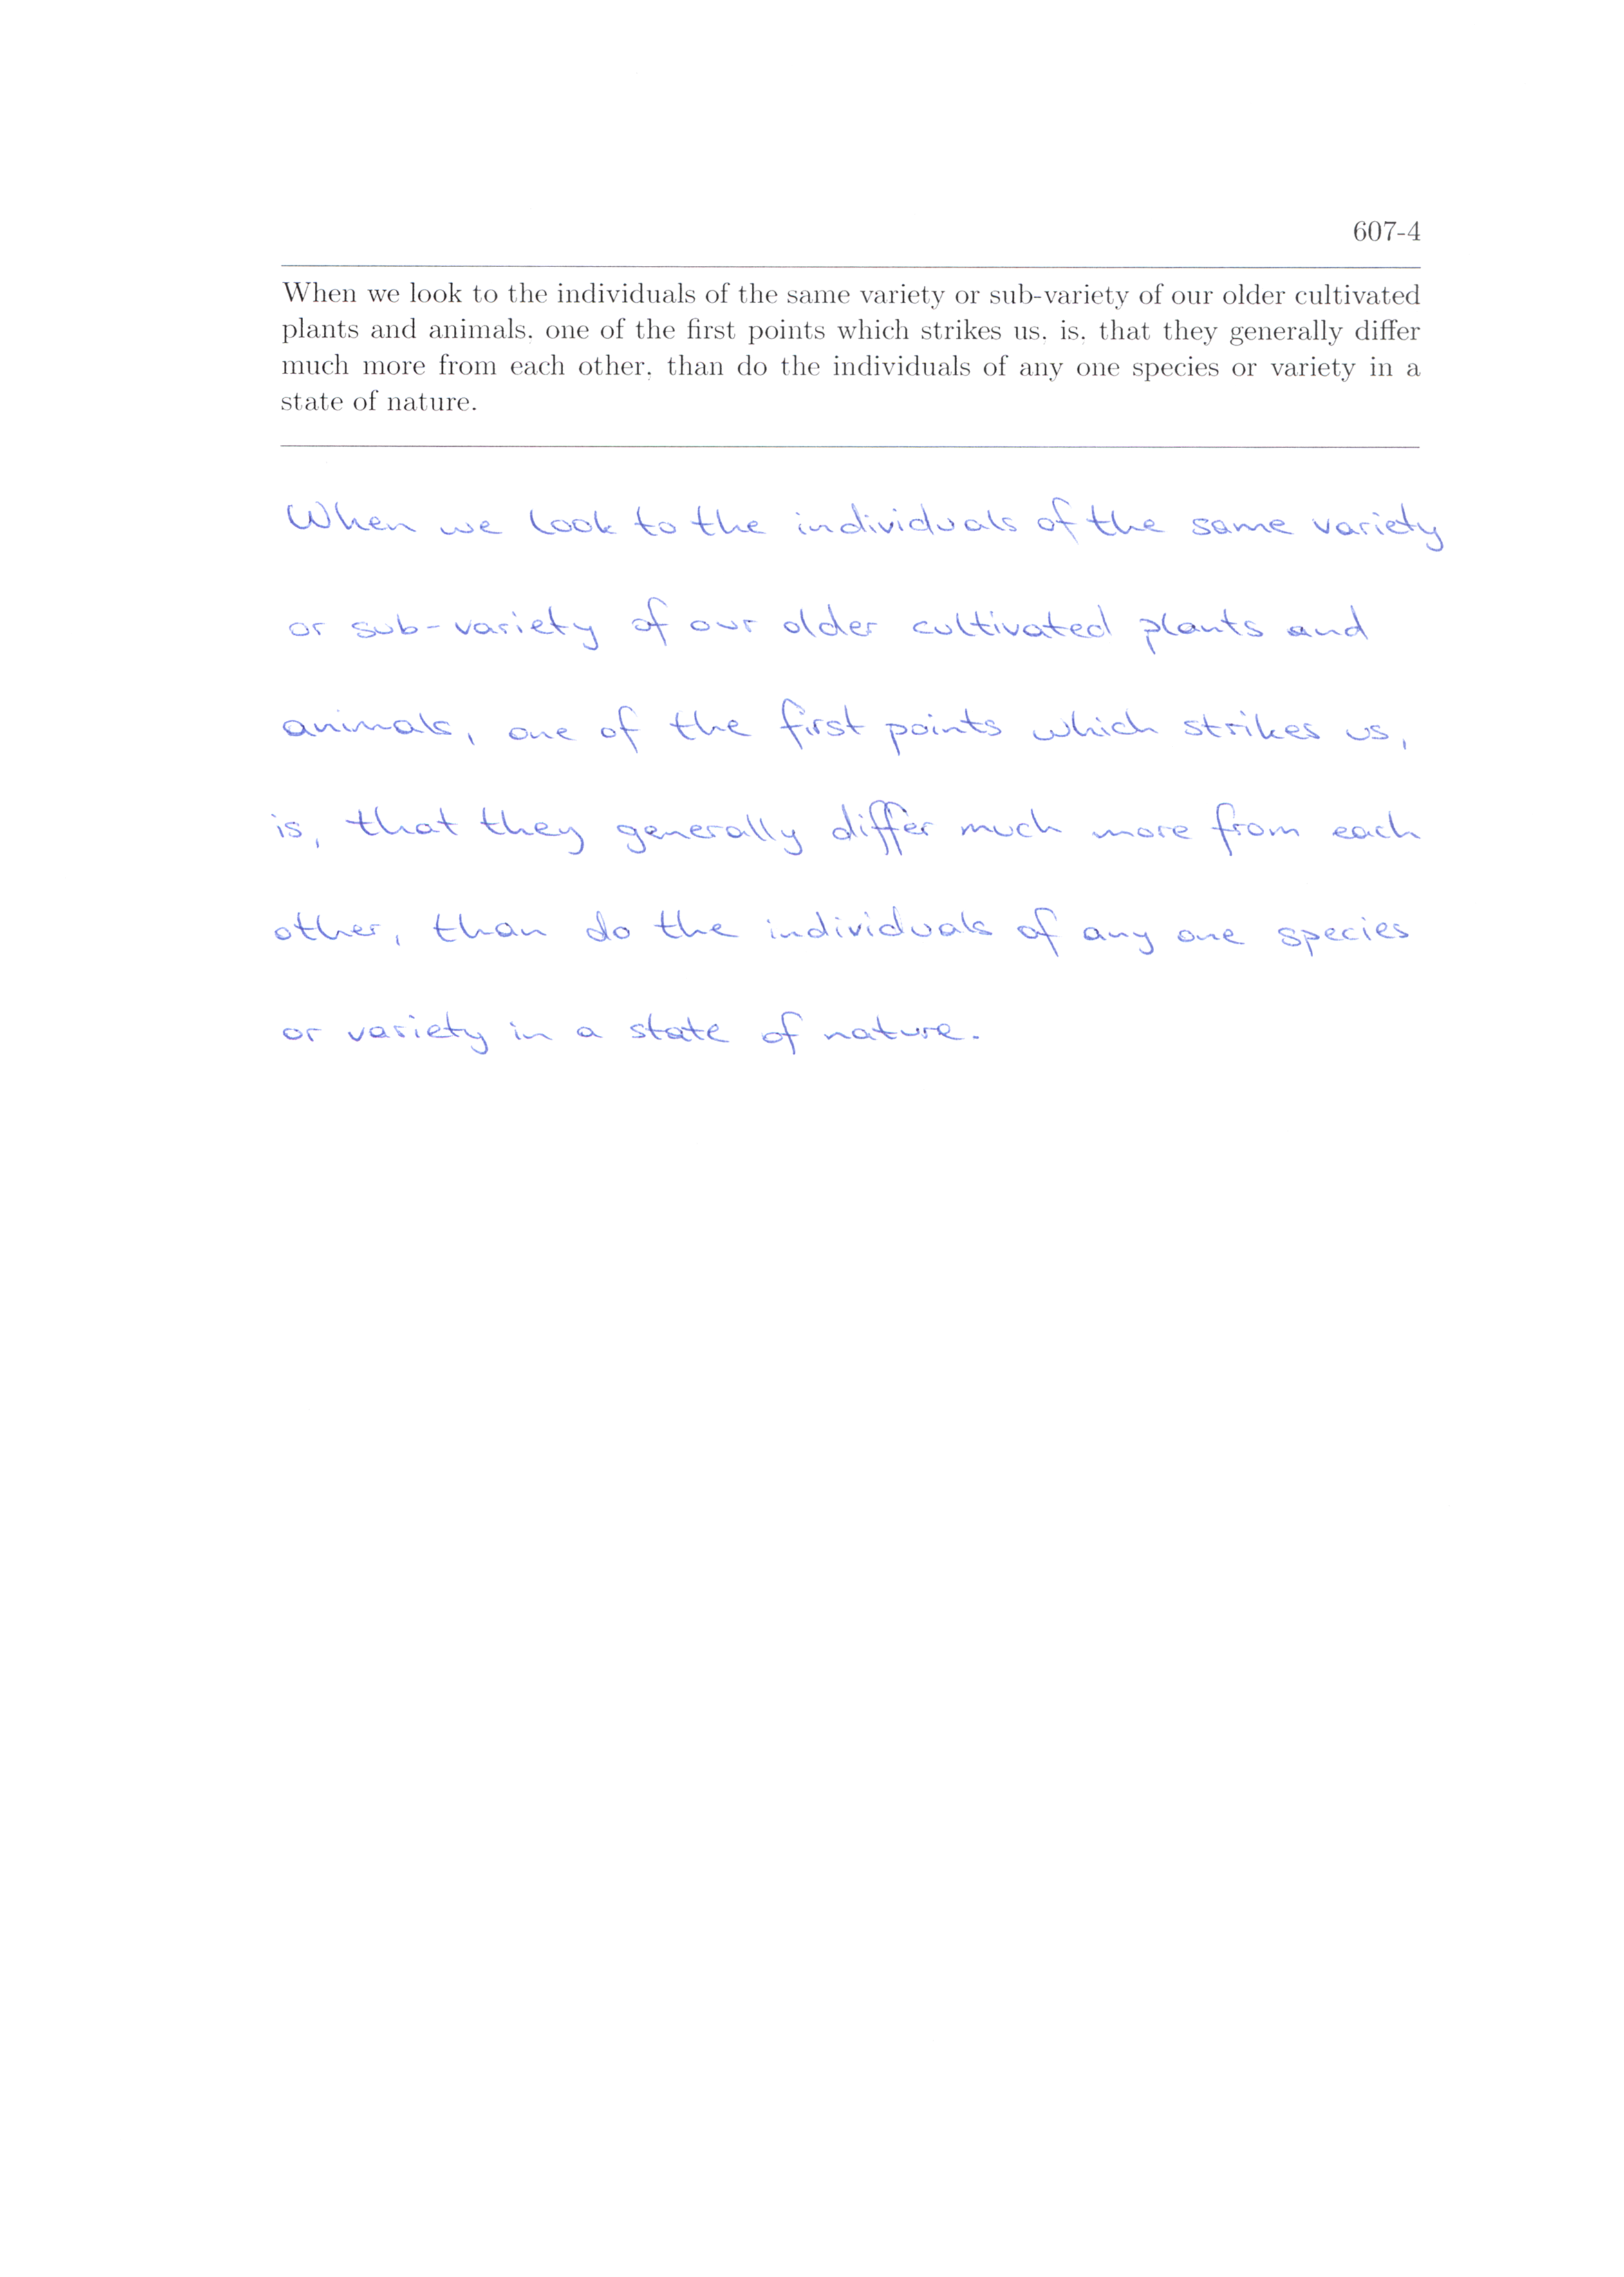 607-4
When we look to the individuals of the same variety or sub-variety of our older cultivated
plants and animals, one of the first points which strikes us, is, that they generally differ
much more from each other, than do the individuals of any one species or variety in a
state of nature.
When we look to the individuals of the same variety
or sub-variety of our older cultivated plants and
animals, one of the first points which strikes us,
is, that they generally differ much more from each
other, than do the individuals of any one species
or variety in a state of nature.